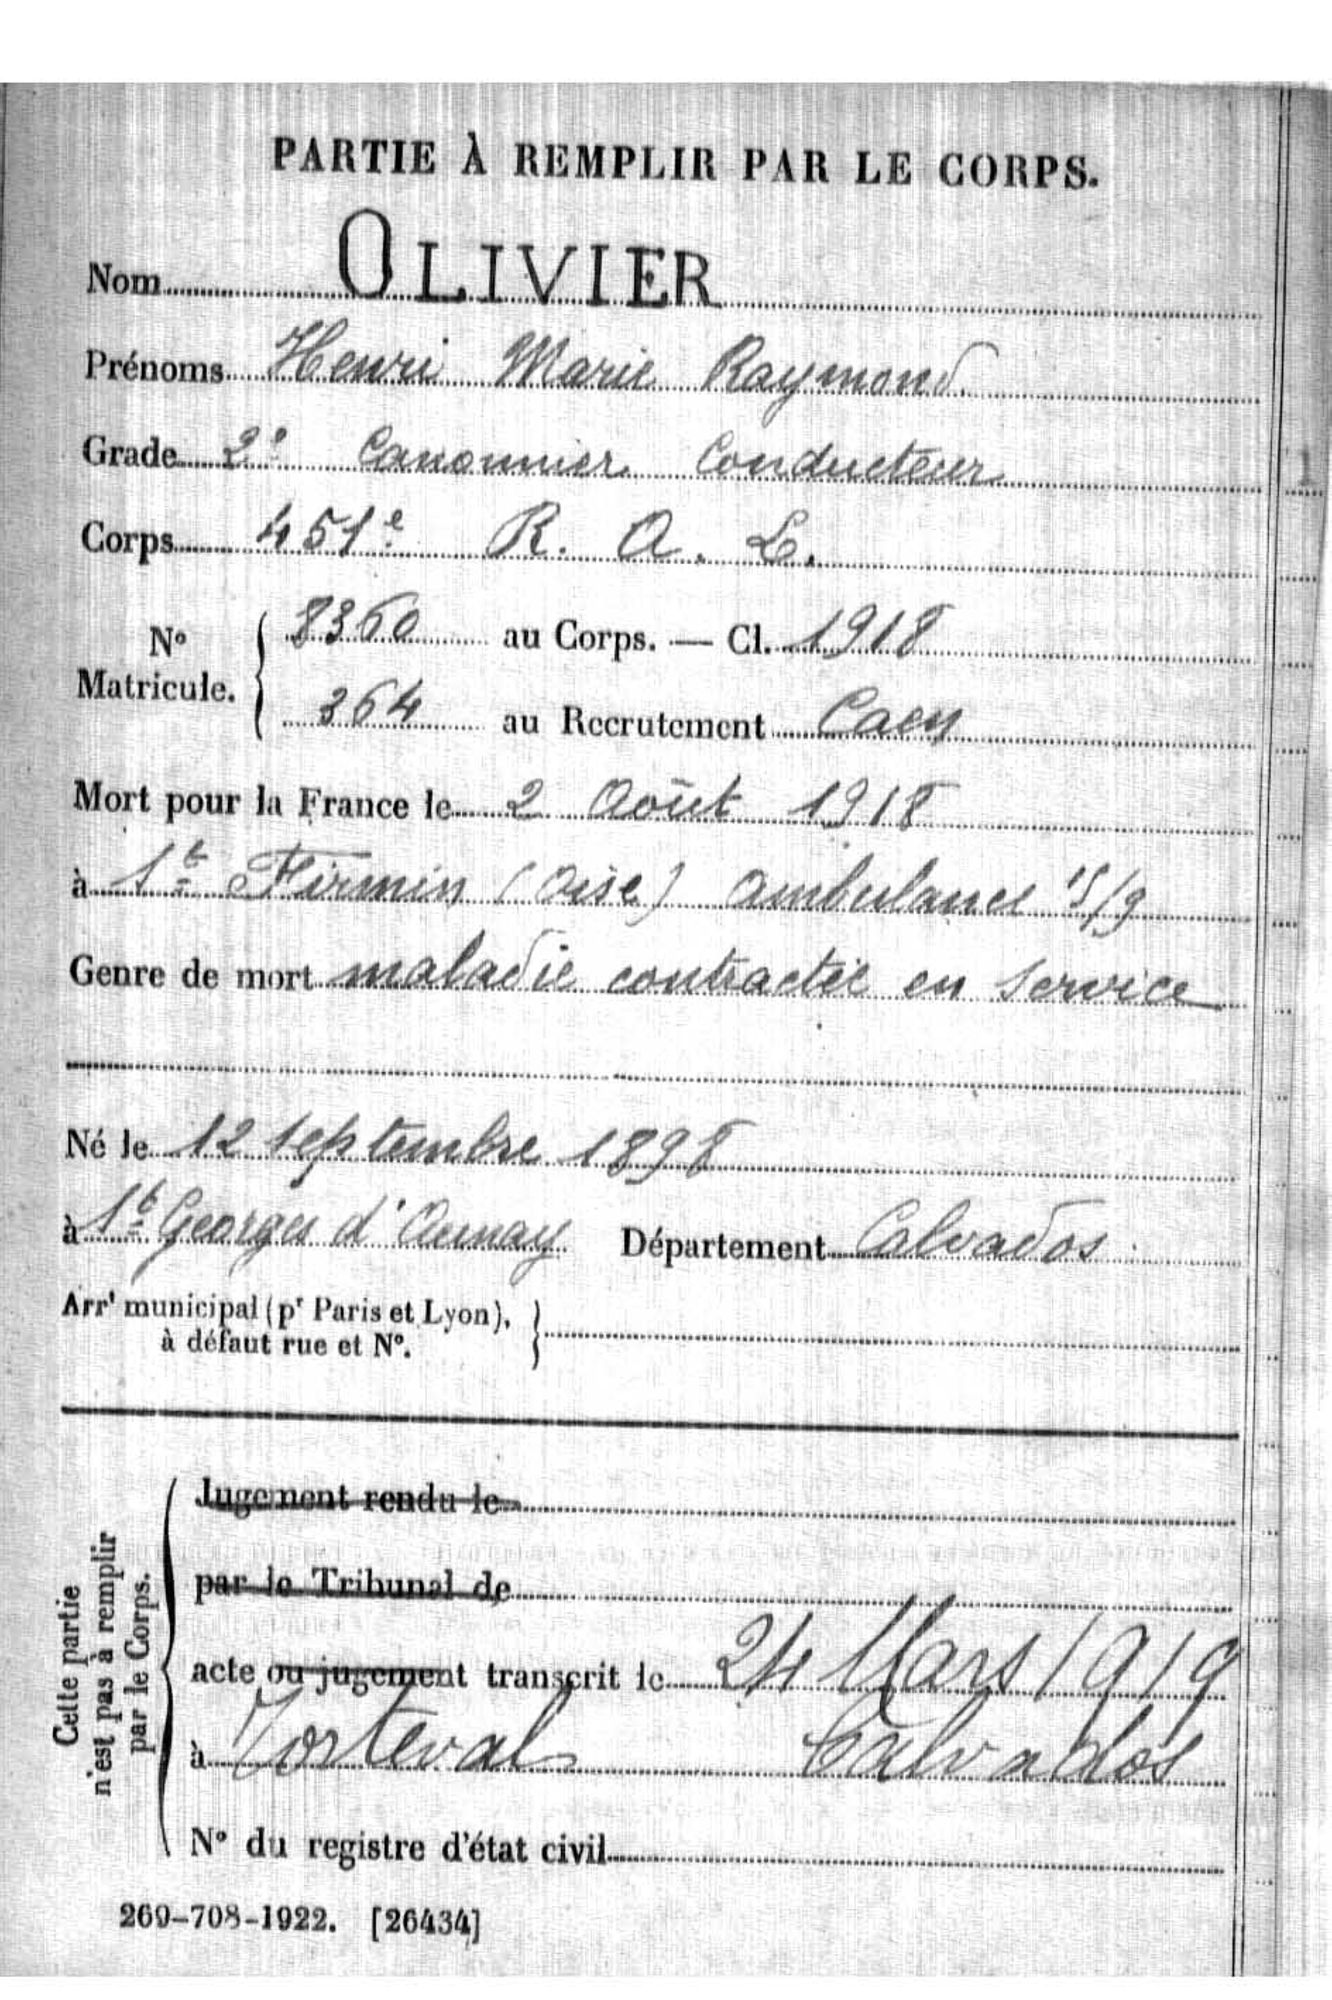 PARTIE À REMPLIR PAR LE CORPS.
Nom OLIVIER
Prénoms Henri Marie Raymond
Grade 2e Canonnier Conducteur
Corps 451e R. A. L.
N° Matricule. { 8360 au Corps. — Cl. 1918
364 au Recrutement Caen
Mort pour la France le 2 Août 1918
à St Firmin (Oise) ambulance 15/9
Genre de mort maladie contractée en service
Né le 12 septembre 1898
à St Georges d'Aunay Département Calvados
Arrt municipal (pr Paris et Lyon),
à défaut rue et N°.
Cette partie
n'est pas à remplir
par le Corps.
Jugement rendu le
par le Tribunal de
acte ou jugement transcrit le 24 Mars 1919
à Torteval Calvados
N° du registre d'état civil
269-708-1922. [26434]